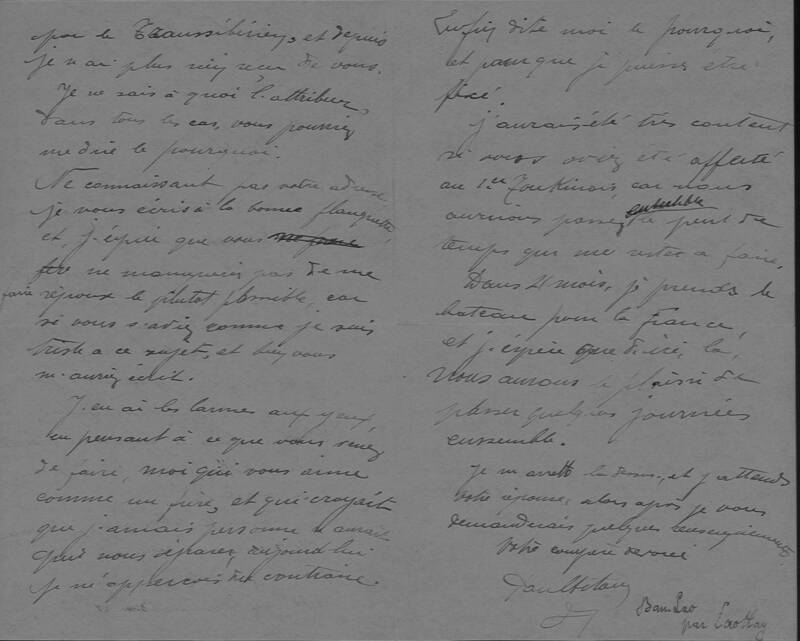 par le Transsibérien, et depuis
je n'ai plus rien reçu de vous.
Je ne sais à quoi l'attribuer,
dans tous les cas, vous pourriez
me dire le pourquoi.
Ne connaissant pas votre adresse
je vous écris à la bonne flanquette
et, j'éspère que vous
ne manquerez pas de me
faire réponse le plutot possible, car
si vous saviez comme je suis
triste a ce sujet, et bien vous
m'auriez écrit.
J'en ai les larmes aux yeux
en pensant à ce que vous venez
de faire, moi qui vous aime
comme un frère, et qui croyait
que jamais personne n'aurait
pu nous séparer, aujourd'hui
je m'apperçois du contraire.
Enfin dite moi le pourquoi,
et pour que je puisse etre
fixé.
J'aurais été très content
si vous aviez été affecté
au 1er Tonkinois, car nous
aurions passez ensemble le peut de
temps que me reste a faire.
Dans 4 mois, je prends le
bateau pour la France,
et j'éspère que d'ici, la,
nous aurons le plaisir de
passer quelques journées
enssemble.
Je m'arrette la dessus, et j'attends
votre réponse, alors après je vous
demanderais quelques renseignements.
Votre compère dévoué
Ban Lao
par Lao Kay